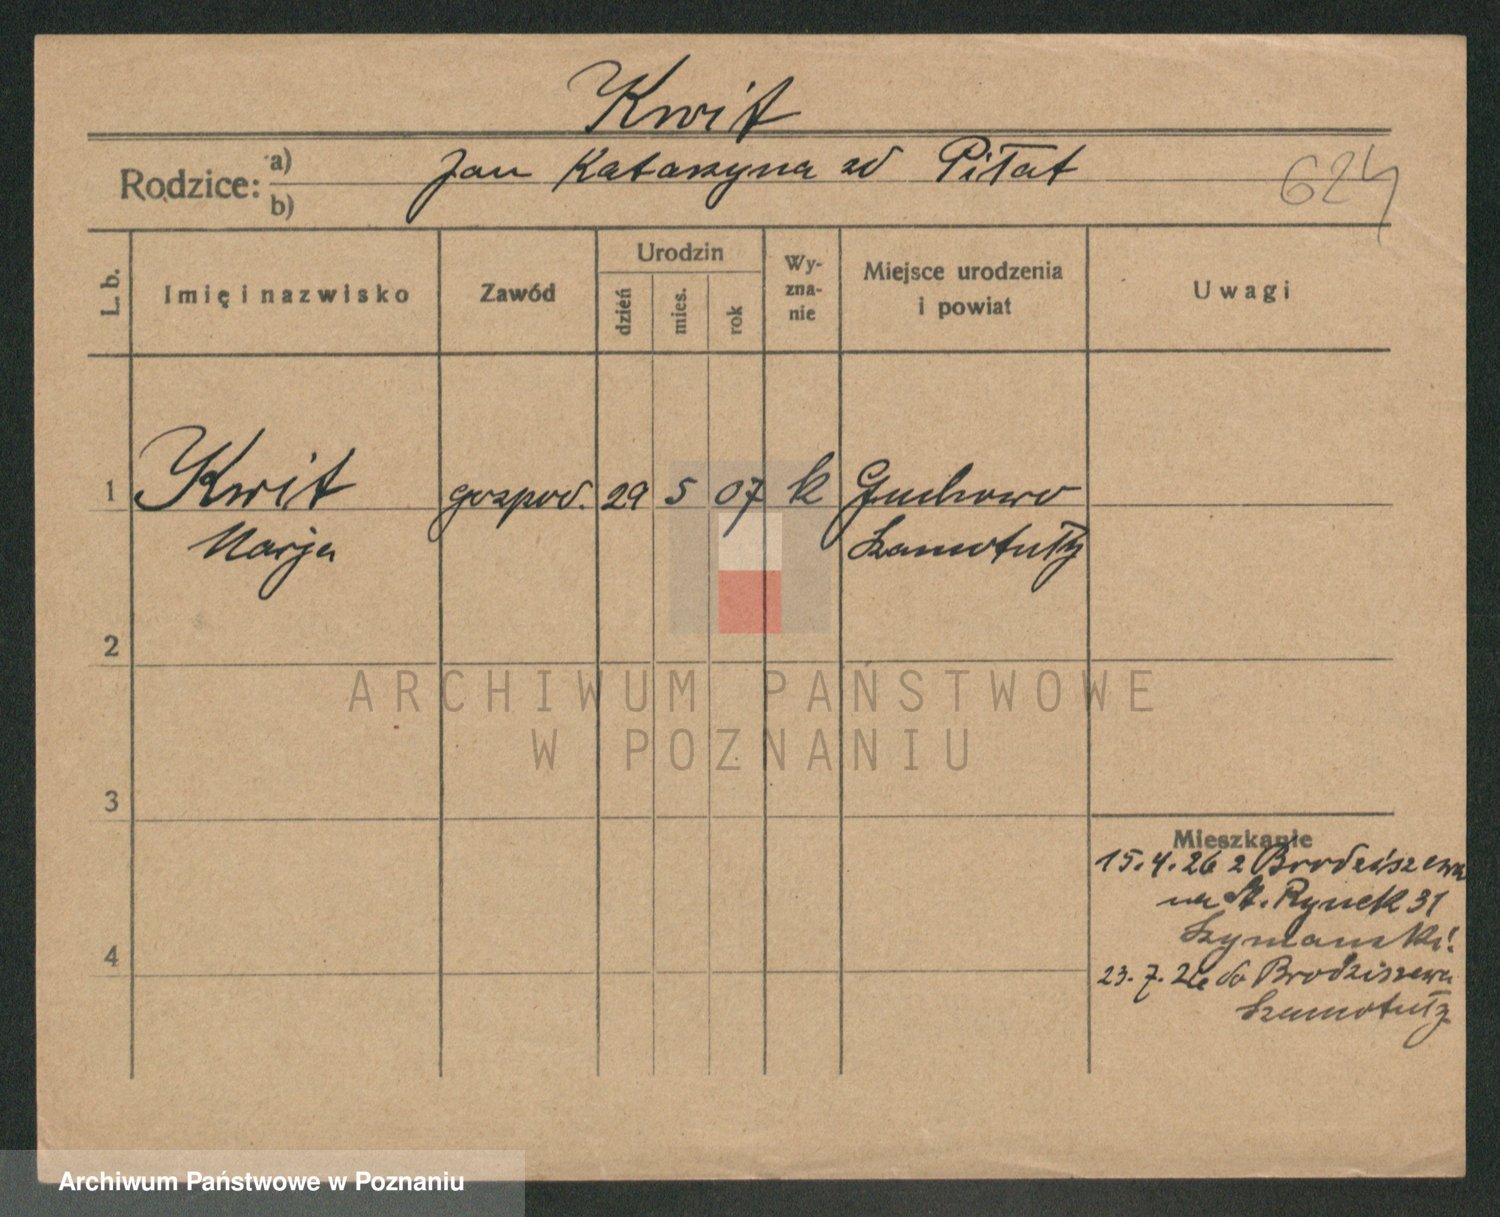 Kwit
Rodzice: a) Jan Katarzyna zd Piłat
b)
624
L. b.
Imię i nazwisko
Zawód
Urodzin
dzień
mies.
rok
Wy-
zna-
nie
Miejsce urodzenia
i powiat
Uwagi
1 Kwit gospod. 29 5 07 k Guchowo
Marja Szamotuły
2
3
4
Mieszkanie
15.4.26 z Brodziszewa
na St. Rynek 31
Szymański
23.7.26 do Brodziszewa
Szamotuły
ARCHIWUM PAŃSTWOWE
W POZNANIU
Archiwum Państwowe w Poznaniu